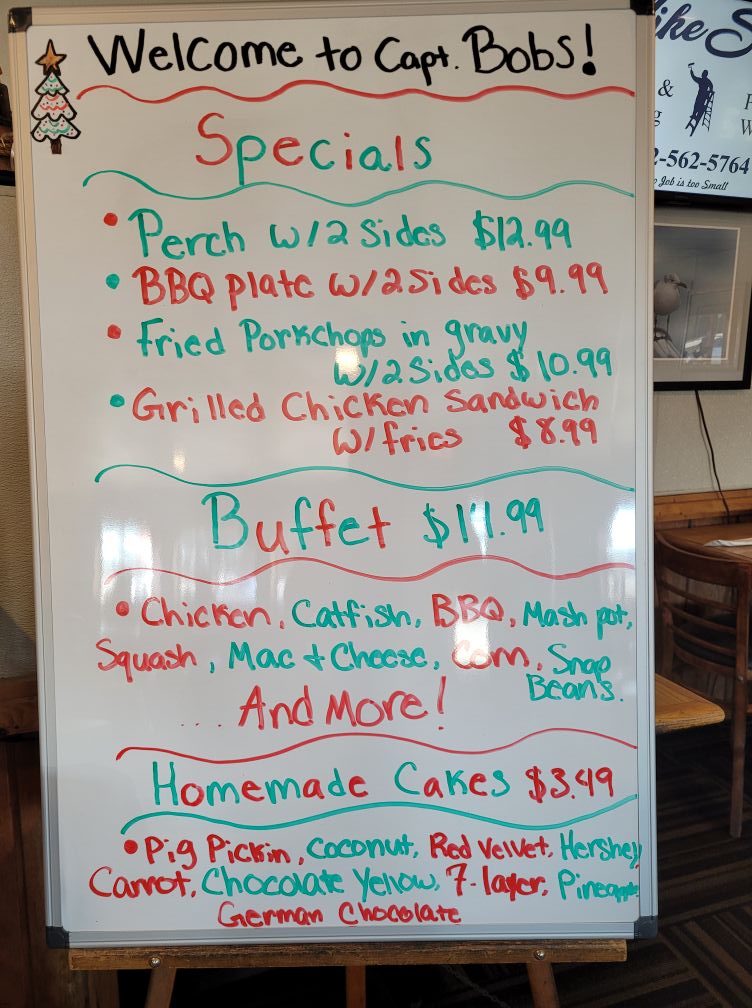 Welcome to Capt. Bobs!
Specials
• Perch w/2 Sides $12.99
• BBQ plate w/2 Sides $9.99
• Fried Porkchops in gravy
w/2 Sides $10.99
• Grilled Chicken Sandwich
w/fries $8.99
Buffet $11.99
• Chicken, Catfish, BBQ, Mash pot,
Squash, Mac + Cheese, Corn, Snap
Beans.
... And More!
Homemade Cakes $3.49
• Pig Pickin, Coconut, Red Velvet, Hershey,
Carrot, Chocolate Yellow, 7-layer, Pineapple
German Chocolate
ike S
&
2-562-5764
Job is too Small